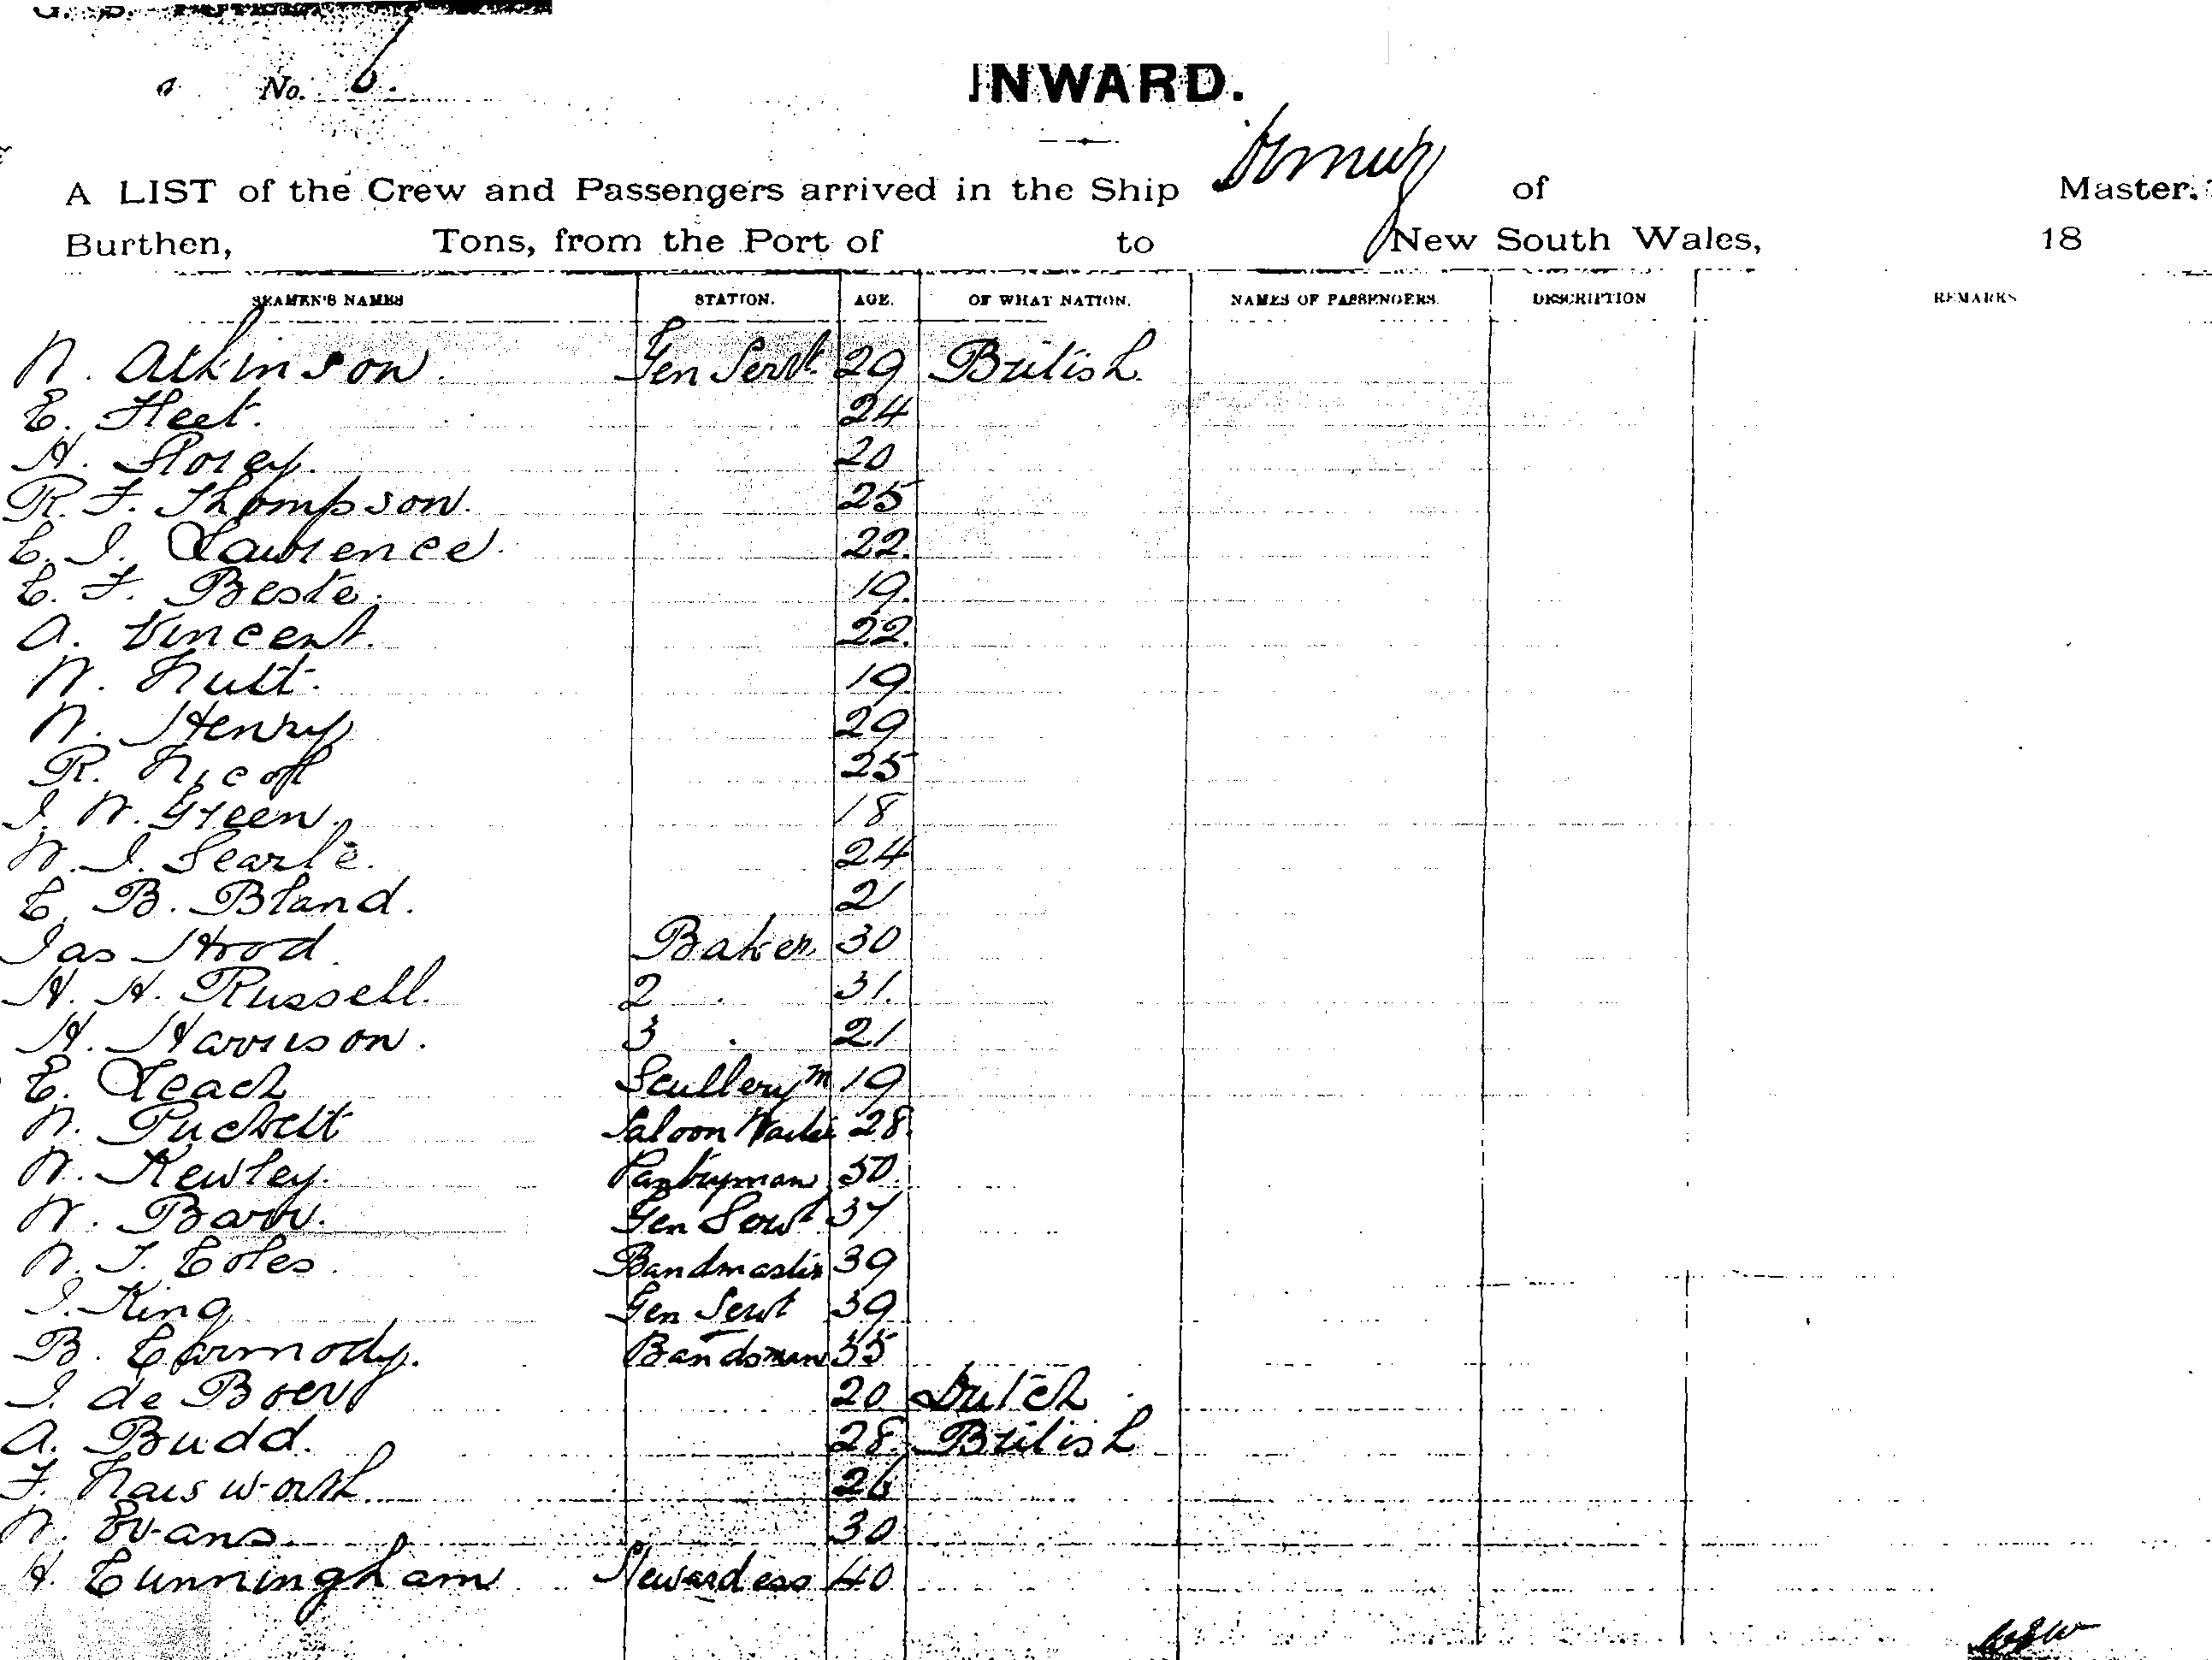 No. 6.
INWARD.
A LIST of the Crew and Passengers arrived in the Ship Ormuz of Master.
Burthen, Tons, from the Port of to New South Wales, 18
SEAMEN'S NAMES STATION. AGE. OF WHAT NATION. NAMES OF PASSENGERS. DESCRIPTION REMARKS
W. Atkinson. Gen Servt. 29 British
E. Fleet. 24
H. Storey. 20
R. F. Thompson. 25
E. J. Lawrence. 22.
E. F. Beste. 19.
A. Vincent. 22.
W. Nutt. 19.
W. Henry 29
R. Nicoll 25
J. W. Green. 18
W. J. Searle. 24
E. B. Bland. 21
Jas Hood. Baker 30
H. H. Russell. 2 . 31.
H. Harrison. 3 . 21
E. Leach Scullery m 19
W. Puckett Saloon Waiter 28.
W. Kewley. Pantryman 50.
W. Barr. Gen Servt 37
W. J. Coles. Bandmaster 39
J. King Gen Servt 39
B. Carmody. Bandsman 35
J. de Boer 20 Dutch
A. Budd. 28. British
F. Naisworth 26
W. Evans. 30
H. Cunningham Stewardess 40